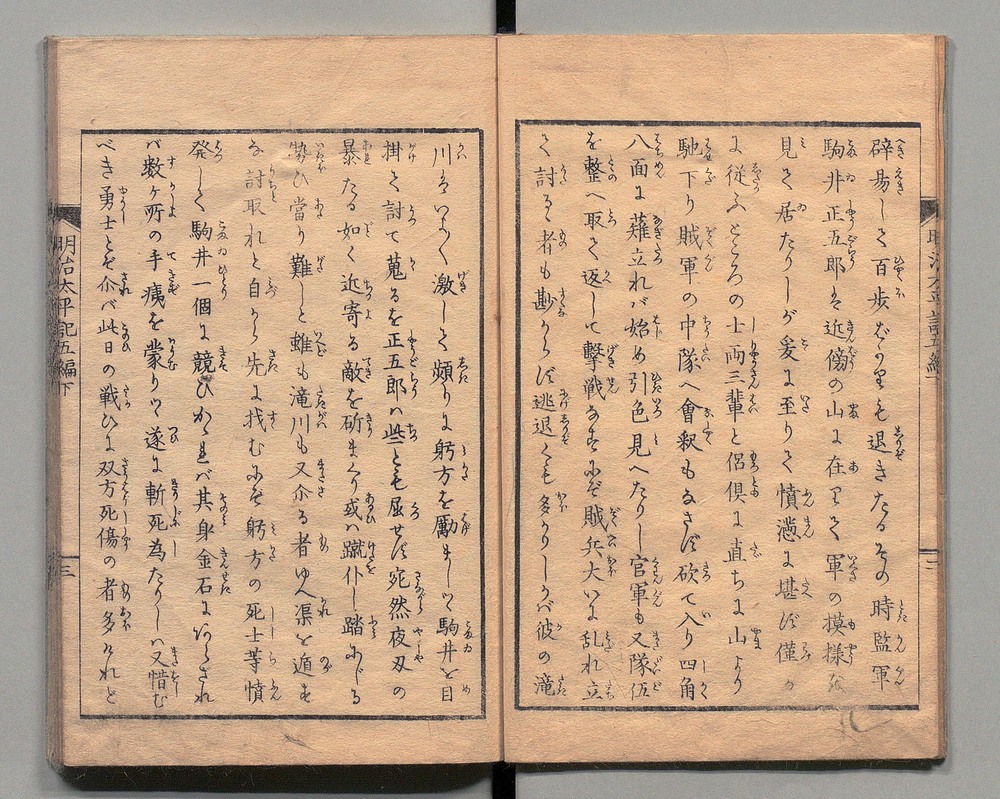 辟易して百歩ばかりも退きたるその時監軍
駒井正五郎は近傍の山に在りて軍の摸様を
見て居たりしが爰に至りて憤懣に堪ず僅か
に従ふところの士両三輩と侶倶に直ちに山より
馳下り賊軍の中隊へ會釈もなさず砍て入り四角
八面に薙立れバ始め引色見へたりし官軍も又隊伍
を整へ取て返して撃戦なすにぞ賊兵大いに乱れ立
て討るゝ者も尠からず逃退くも多かりしかバ彼の滝
川はいよ〱激して頻りに躬方を勵ましつゝ駒井を目
掛て討て蒐るを正五郎ハ些ともも屈せず宛然夜叉の
暴たる如く近寄る敵を斫まくり或ハ蹴仆し踏にじる
勢ひ當り難しと雖も滝川も又尒る者ゆへ渠を遁すな
討取れと自から先に找むにぞ躬方の死士等憤
発して駒井一個に競ひかゝれバ其身金石にあらざれ
バ数ヶ所の手痍を蒙りつゝ遂に斬死為たりしハ又惜む
べき勇士とぞ尒バ此日の戦ひに双方死傷の者多けれと
明治太平記五編下
三